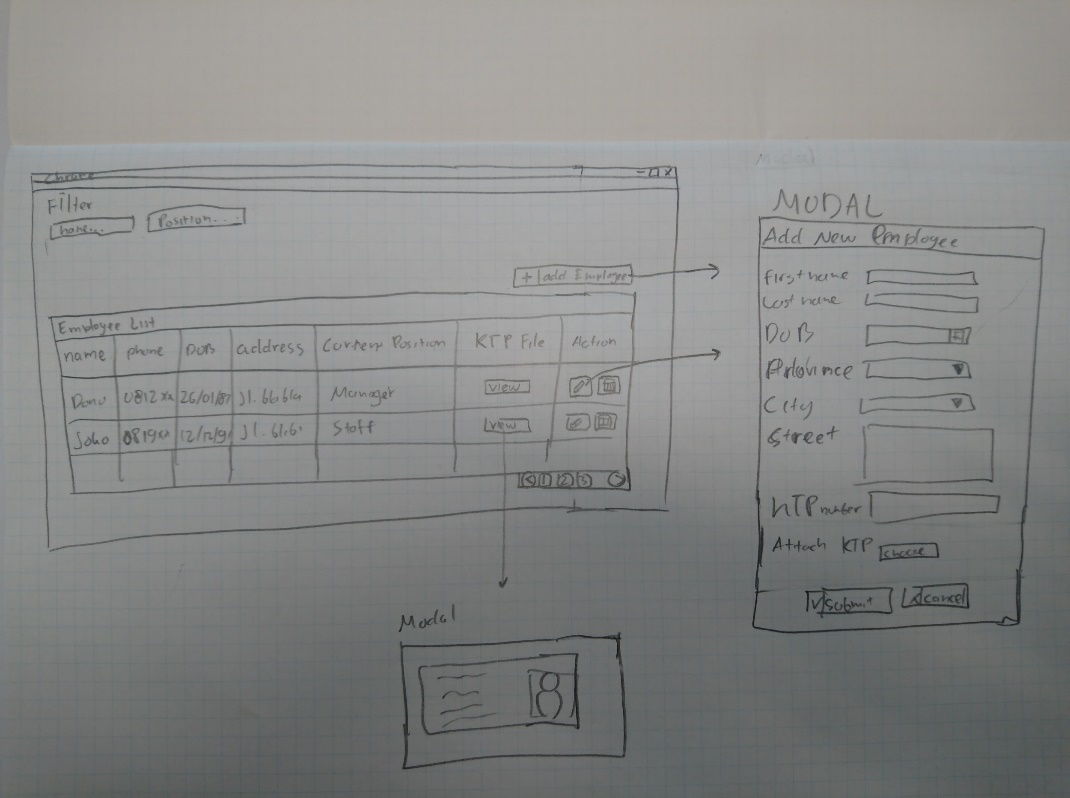 Modal
Chrome
Filter
name... Position...
+ add Employee
Employee List
name phone DOB address Current Position KTP File Action
0812xx 26/01/87 Jl. blabla Manager view
Joko 0819xx Staff view
1 2 3
MODAL
Add New Employee
First name
Last name
DoB
Province
City
Street
KTP number
Attach KTP choose
Submit x cancel
Modal